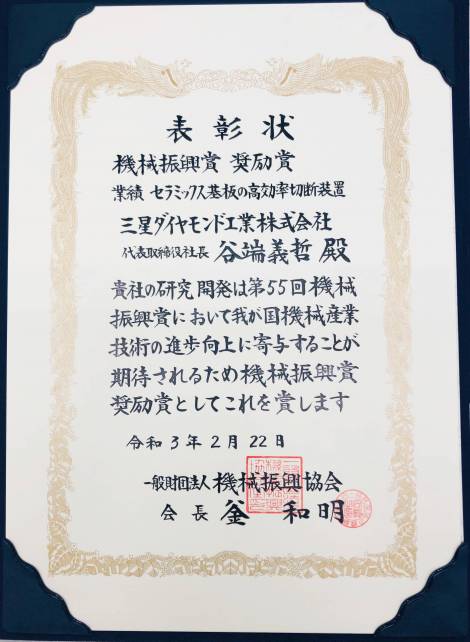 表彰状
機械振興賞 奨励賞
業績 セラミックス基板の高効率切断装置
三星ダイヤモンド工業株式会社
代表取締役社長 谷端義哲 殿
貴社の研究開発は第55回機械
振興賞において我が国機械産業
技術の進歩向上に寄与することが
期待されるため機械振興賞
奨励賞としてこれを賞します
令和3年2月22日
一般財団法人 機械振興協会
会長 釡 和明